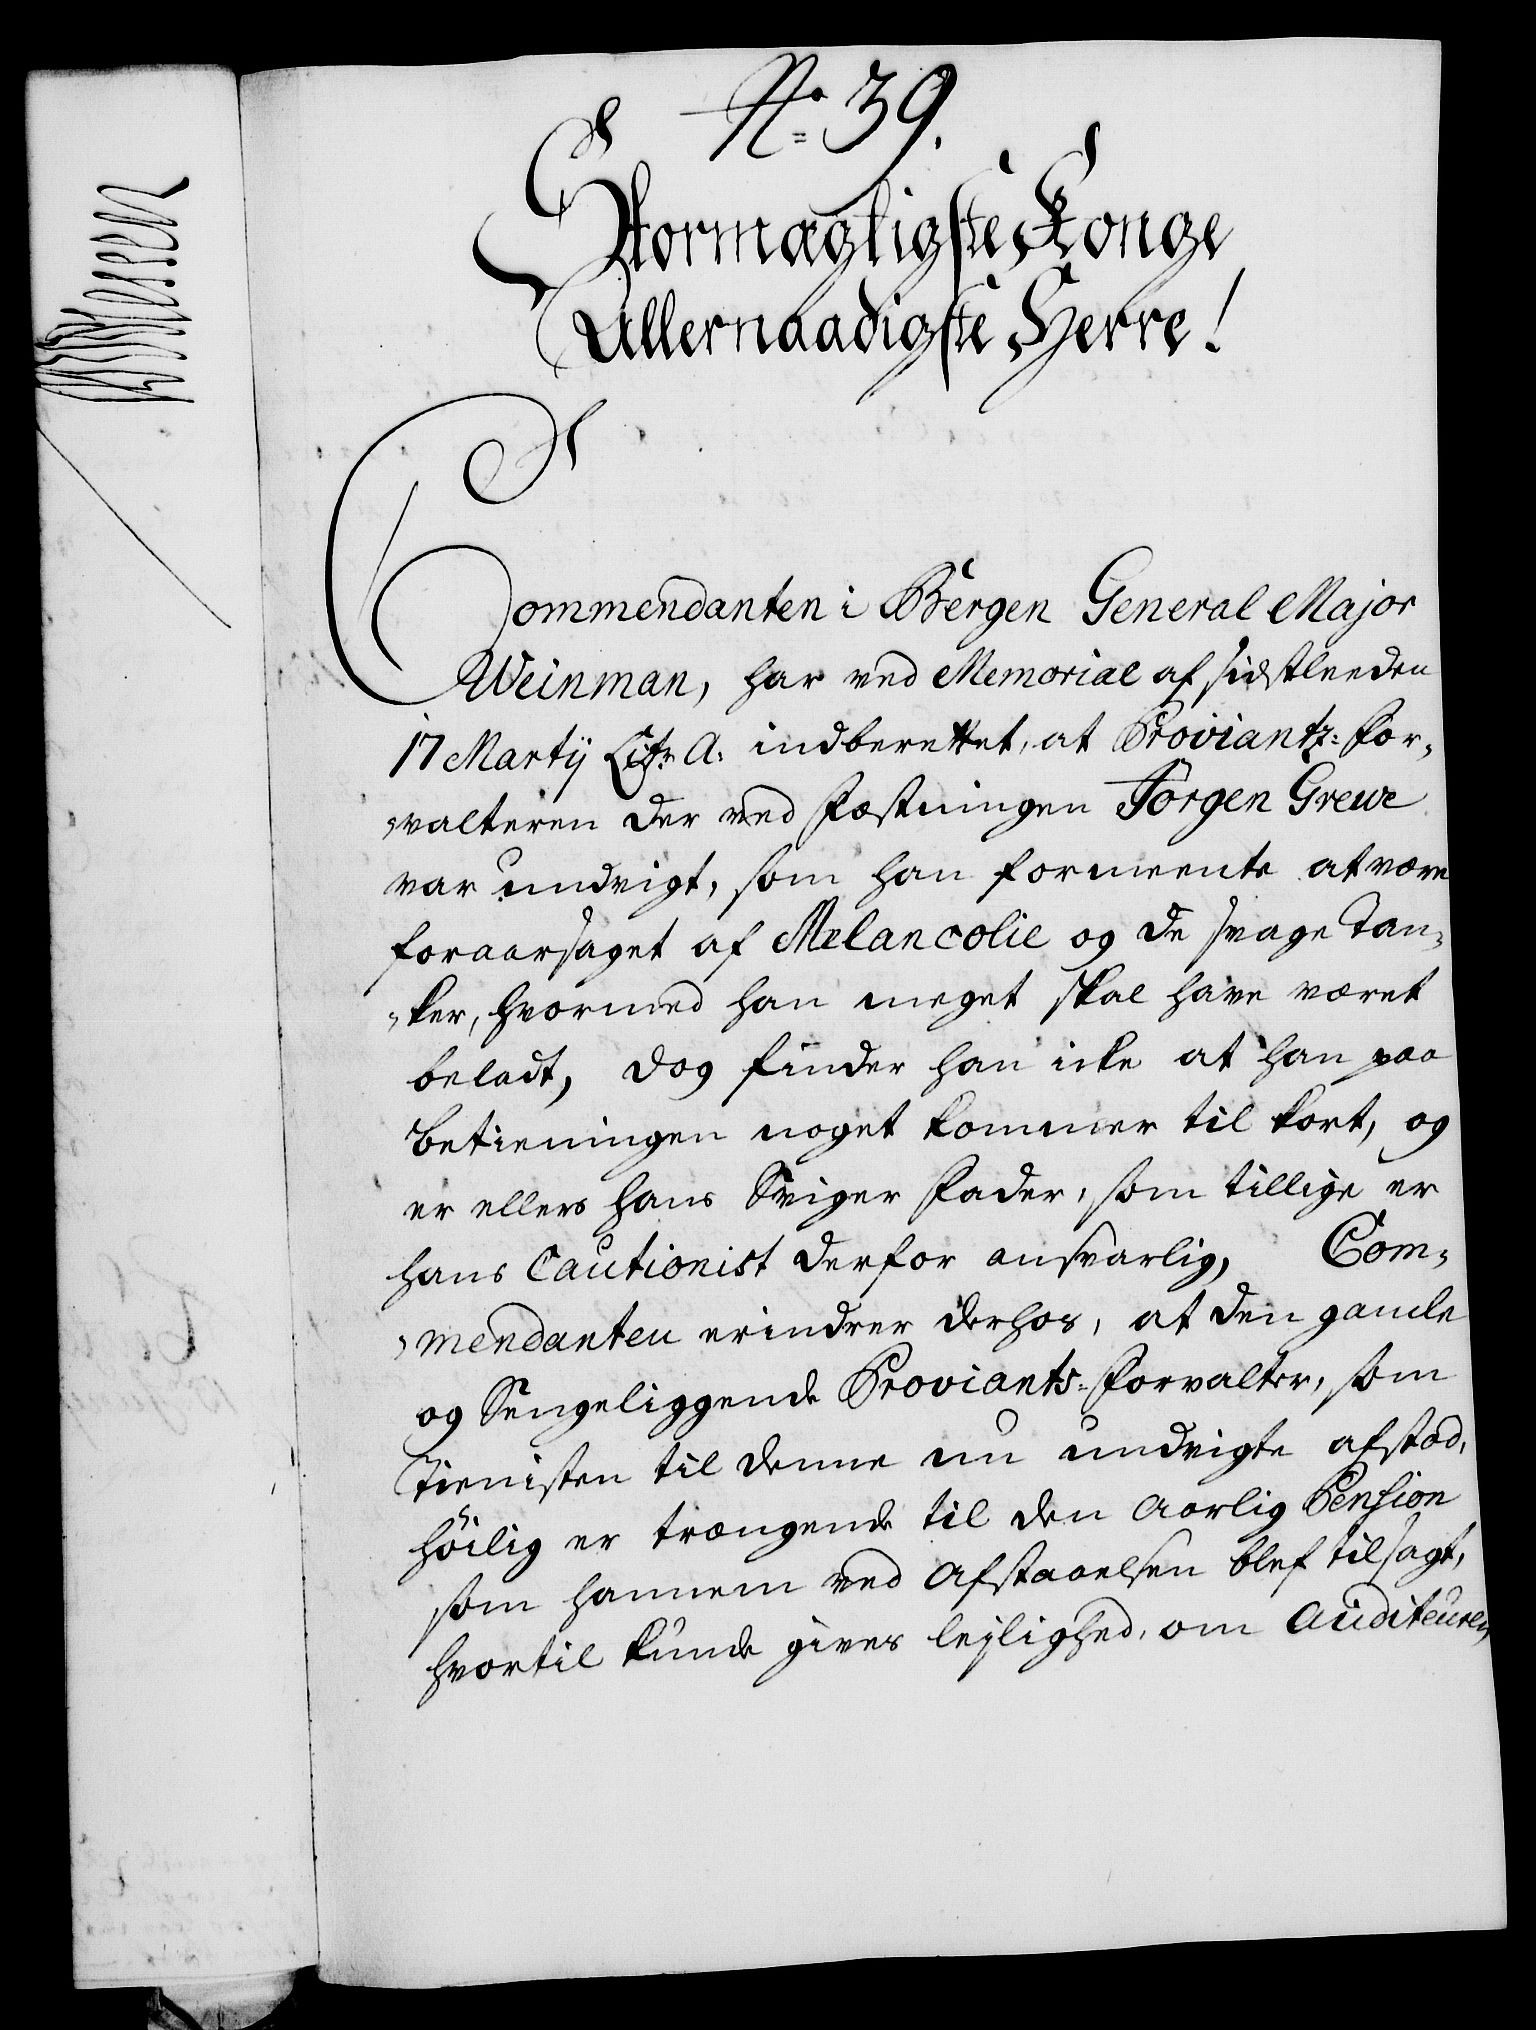 No 39.
Stormægtigste Konge
Allernaadigste Herre!
Commendanten i Bergen General Major
Weinman, har ved Memorial af sidstleeden
17 Martÿ Litr A. indberettet, at Proviantz-For-
-valteren der ved Fæstningen Jörgen Grewe
var undvigt, som han formeente at være
foraarsaget af Melancolie og de svage Tan-
-ker, hvormed han meget skal have været
beladt, dog finder han icke at han paa
betieningen noget kommer til kort, og
er ellers hans Sviger Fader, som tillige er
hans Cautionist derfor ansvarlig, Com-
-mendanten erindrer derhos, at den gamle
og Sengeliggende Proviants-Forvalter, som
Tienisten til denne nu undvigte afstod,
höilig er trængende til den Aarlig Pension
som hannem ved Afstaaelsen blef tilsagt,
hvortil kunde gives lejlighed, om Auditeuren